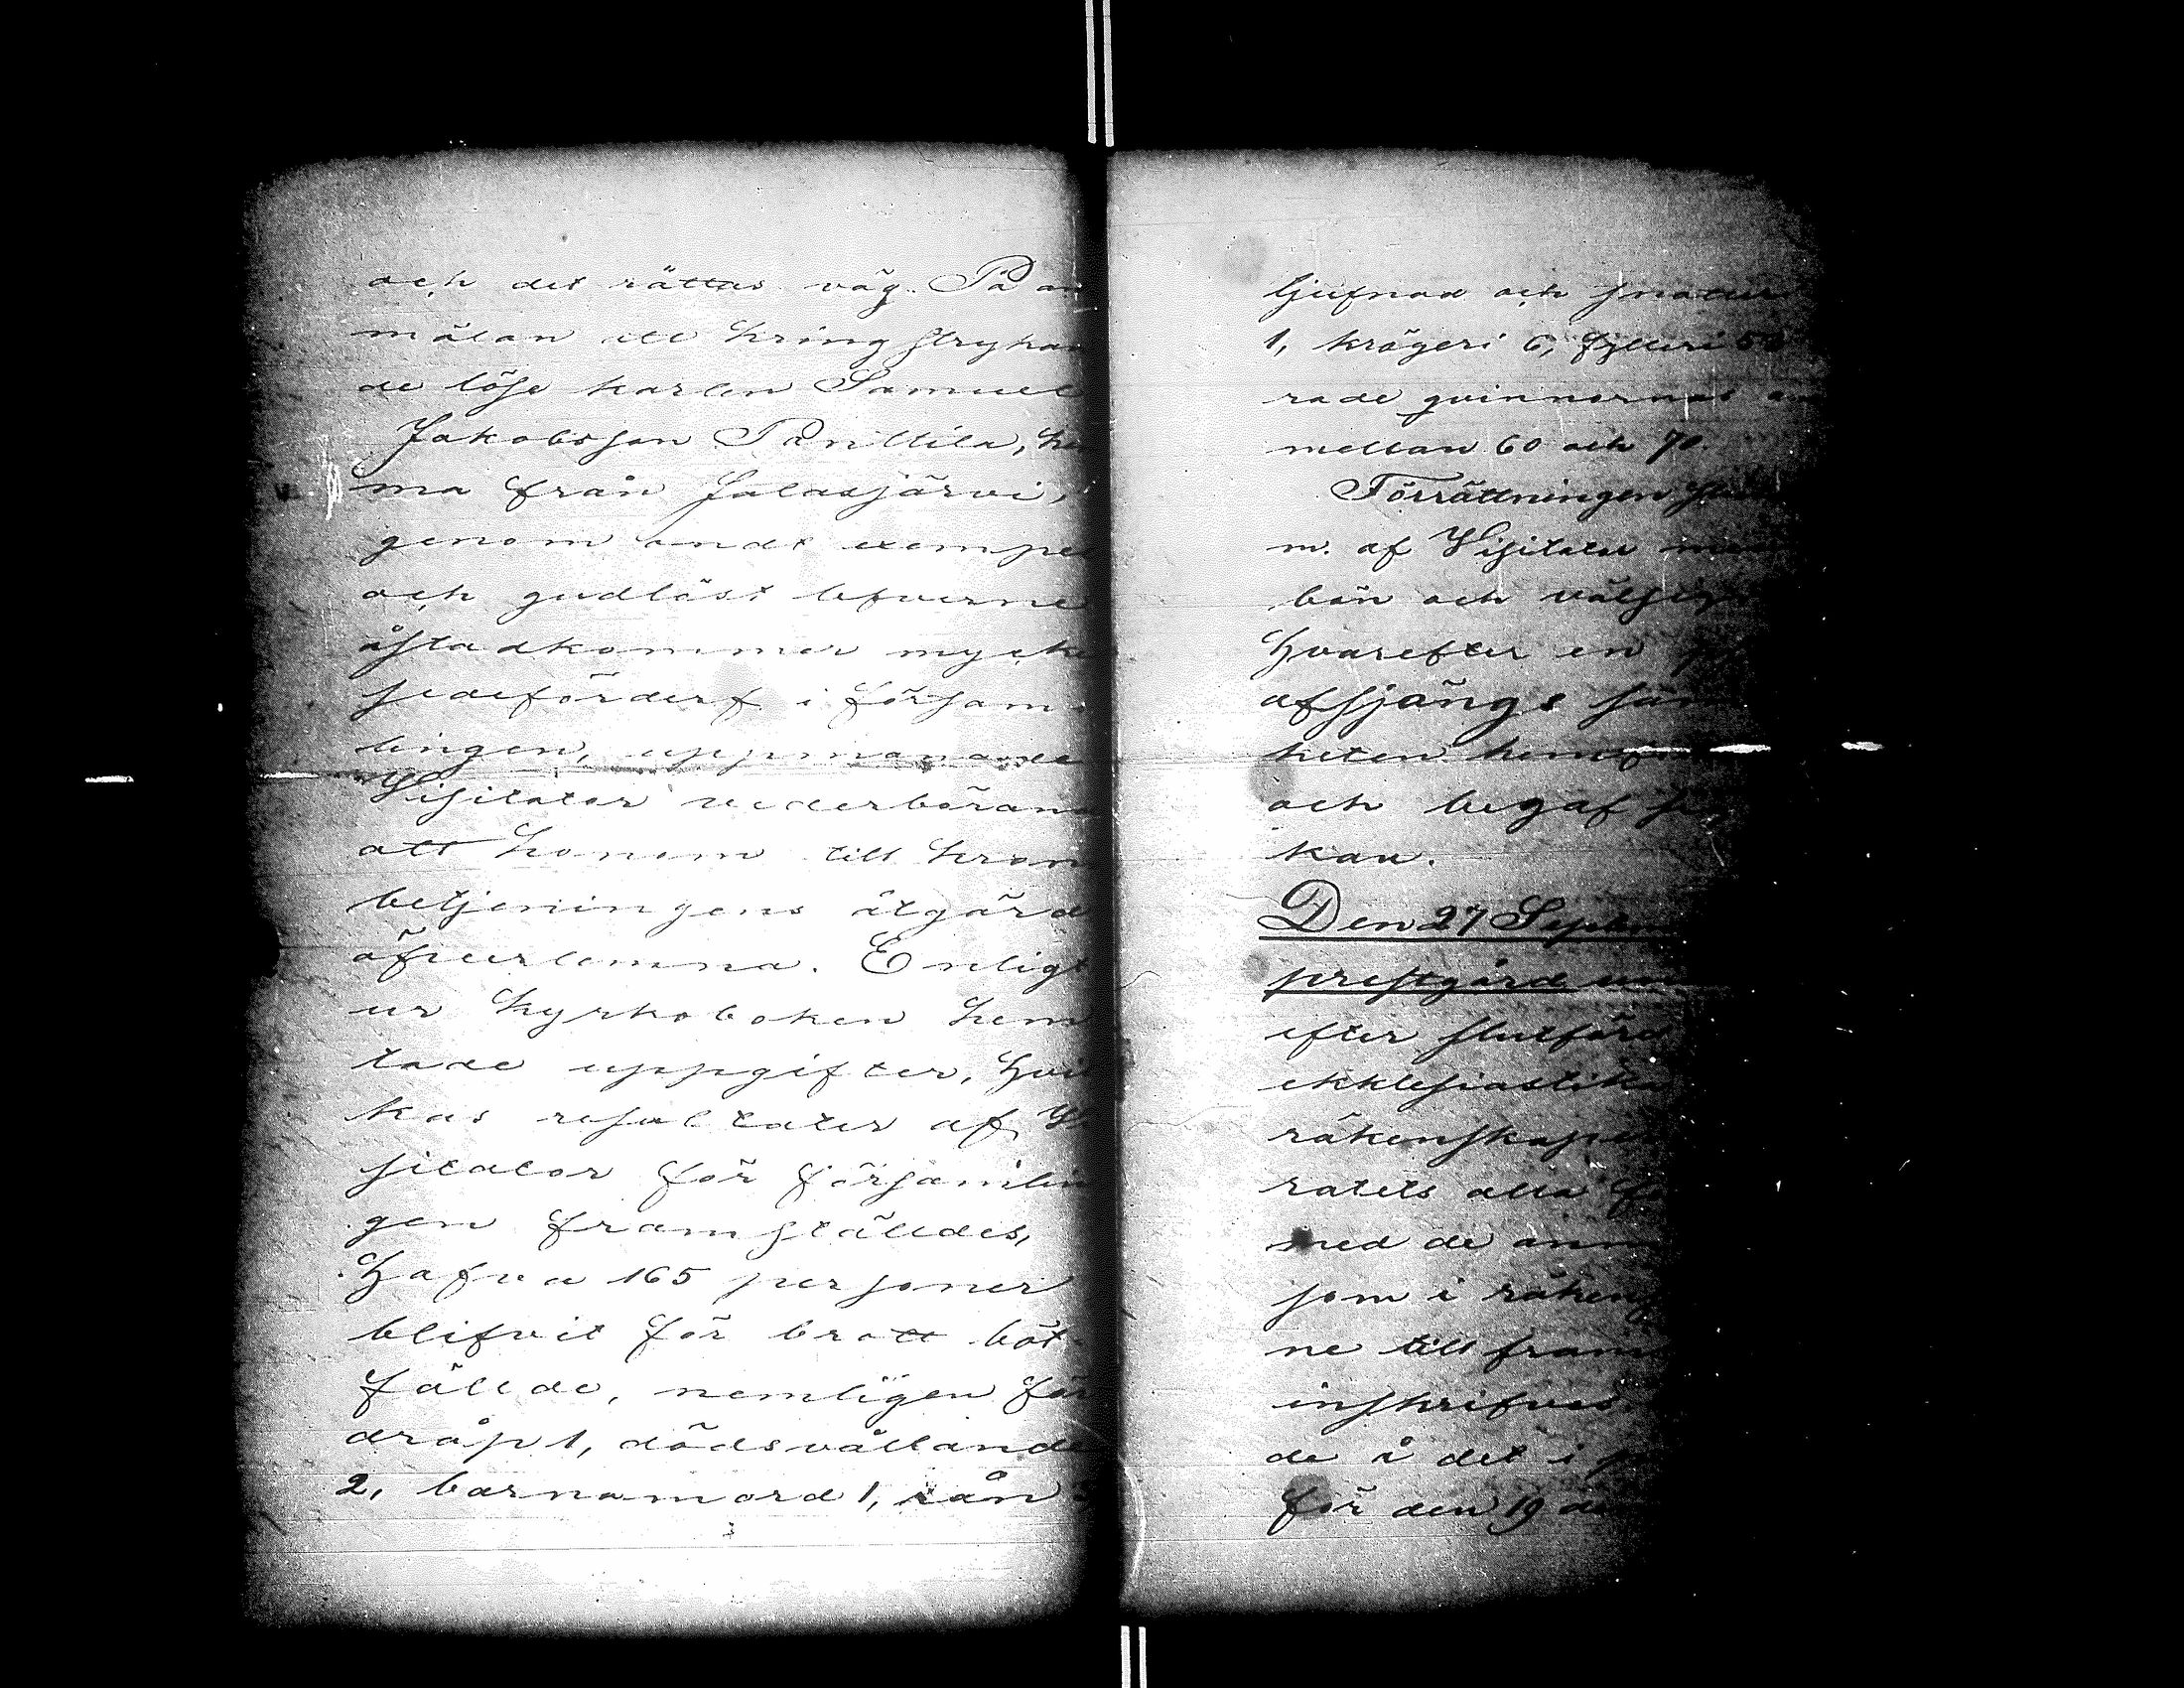 och det rättas väg. På an
mälan att kringstrykan
de löse karlen Samuel
Jakobsson Panttila, he
ma från Jalasjärvi,
genom ondt exempe
och gudlöst lefverne
åstadkommer mycke
sedeförderf i försam-
lingen, uppmanade
Visitator vederböran
att honom till kron
betjeningens åtgärd
öfverlemna. Enligt
ur kyrkoboken hem
tade uppgifter, hvil
kas resultater af Vi
sitator för församlin
gen framställdes,
hafva 165 personer
blifvit för brott böt-
fällde, nemligen för
dråp 1, dödsvållande
2, barnamord 1, rån
tjufnad och snatteri
1, krögeri 6, fylleri 53
rade qvinnornas
mellan 60 och 70.
Förrättningen
m. af Visitator med
bön och välsign
hvarefter en
afsjöngs
heten hemf
och begaf
kan.
Den 27 Septem
prestgård
efter slutförd
ekklesiastika
räkenskaper
ratets alla
med de anm
som i räkens
ne till fram
inskrifves
de å det i p
för den 19 de